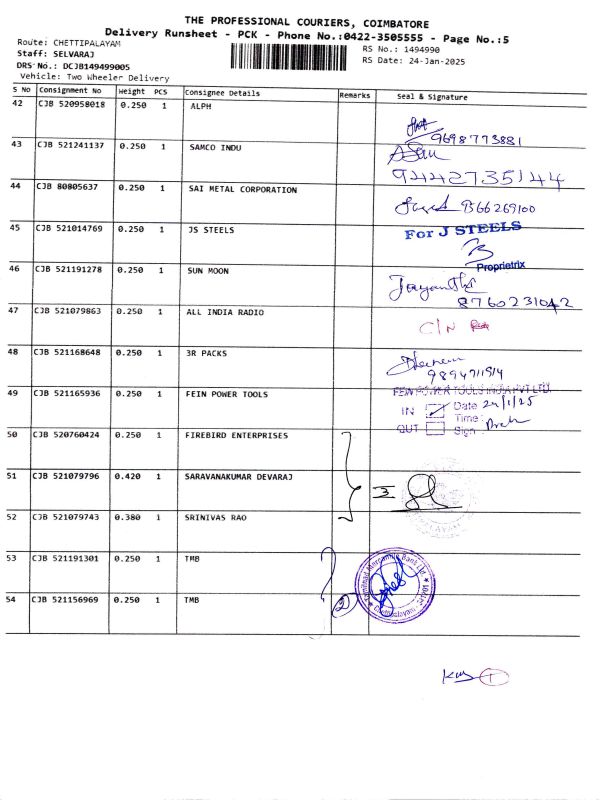 THE PROFESSIONAL COURIERS, COIMBATORE
Delivery Runsheet - PCK - Phone No.:0422-3505555 - Page No.:5
Route: CHETTIPALAYAM
Staff: SELVARAJ
DRS No.: DCJB149499005
Vehicle: Two Wheeler Delivery
RS No.: 1494990
RS Date: 24-Jan-2025
S No Consignment No Weight PCS Consignee Details Remarks Seal & Signature
42 CJB 520958018 0.250 1 ALPH
9698773881
43 CJB 521241137 0.250 1 SAMCO INDU
9442735144
44 CJB 80805637 0.250 1 SAI METAL CORPORATION
9566269100
45 CJB 521014769 0.250 1 JS STEELS
For J STEELS
Proprietrix
46 CJB 521191278 0.250 1 SUN MOON
8760231042
47 CJB 521079863 0.250 1 ALL INDIA RADIO
C/N
48 CJB 521168648 0.250 1 3R PACKS
9894711914
49 CJB 521165936 0.250 1 FEIN POWER TOOLS
FEIN POWER TOOLS INDIA PVT LTD.
IN Date 24/1/25
Time :
OUT Sign :
50 CJB 520760424 0.250 1 FIREBIRD ENTERPRISES
51 CJB 521079796 0.420 1 SARAVANAKUMAR DEVARAJ
3
52 CJB 521079743 0.380 1 SRINIVAS RAO
53 CJB 521191301 0.250 1 TMB
Tamilnad Mercantile Bank Ltd.
54 CJB 521156969 0.250 1 TMB
2